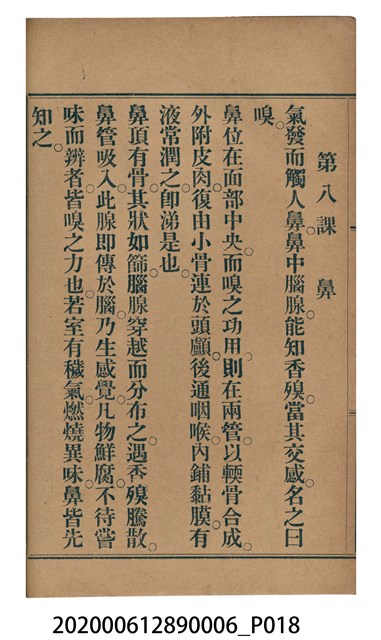 第八課　鼻
氣發而觸人鼻。鼻中腦腺。能知香殠。當其交感。名之曰
嗅。
鼻位在面部中央。而嗅之功用。則在兩管。以輭骨合成。
外附皮肉。復由小骨連於頭顱。後通咽喉。內鋪黏膜。有
液常潤之。卽涕是也。
鼻頂有骨。其狀如篩。腦腺穿越而分布之。遇香殠騰散。
鼻管吸入。此腺卽傳於腦。乃生感覺。凡物鮮腐。不待嘗
味而辨者。皆嗅之力也。若室有穢氣。燃燒異味。鼻皆先
知之。
202000612890006_P018